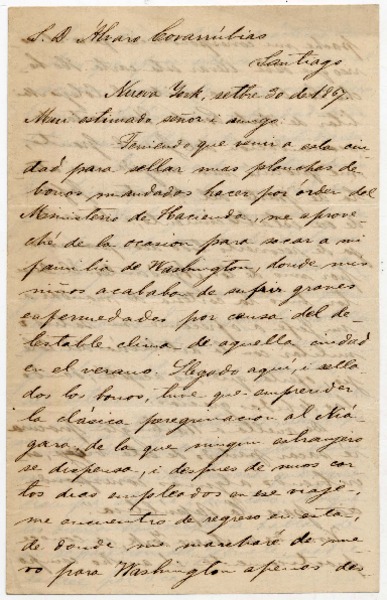 S. D. Álvaro Covarrúbias
Santiago
Nueva York, setbre 20 de 1867.
Mui estimado señor i amigo:
Teniendo que venir a esta ciu-
dad para sellar unas planchas de
bonos mandados hacer por orden del
Ministerio de Hacienda, me aprove-
ché de la ocasion para sacar a mi
familia de Washington, donde mis
niños acababan de sufrir graves
enfermedades por causa del de-
testable clima de aquella ciudad
en el verano. Llegado aquí, i sella-
dos los bonos, tuve que emprender
la clásica peregrinacion al Niá-
gara, de la que ningun estranjero
se dispensa, i despues de unos cor-
tos dias empleados en ese viaje,
me encuentro de regreso en esta,
de donde me marcharé de nue-
vo para Washington apenas des-